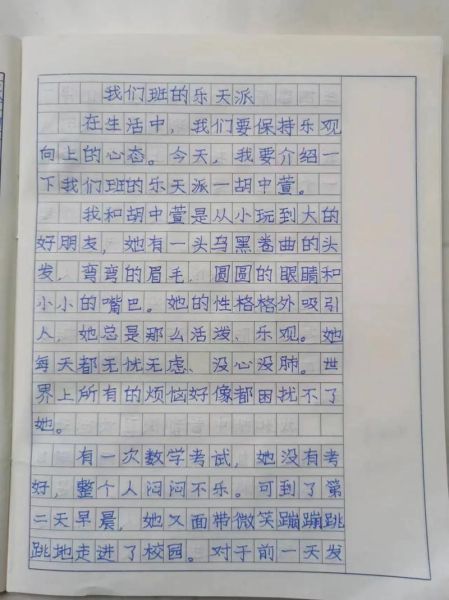 我们班的乐天派
在生活中，我们要保持乐观
向上的心态。今天，我要介绍一
下我们班的乐天派—胡中萱。
我和胡中萱是从小玩到大的
好朋友，她有一头乌黑卷曲的头
发，弯弯的眉毛，圆圆的眼睛和
小小的嘴巴。她的性格格外吸引
人，她总是那么活泼、乐观。她
每天都无忧无虑、没心没肺。世
界上所有的烦恼好像都困扰不了
她。
有一次数学考试，她没有考
好，整个人闷闷不乐。可到了第
二天早晨，她又面带微笑蹦蹦跳
跳地走进了校园。对于前一天发